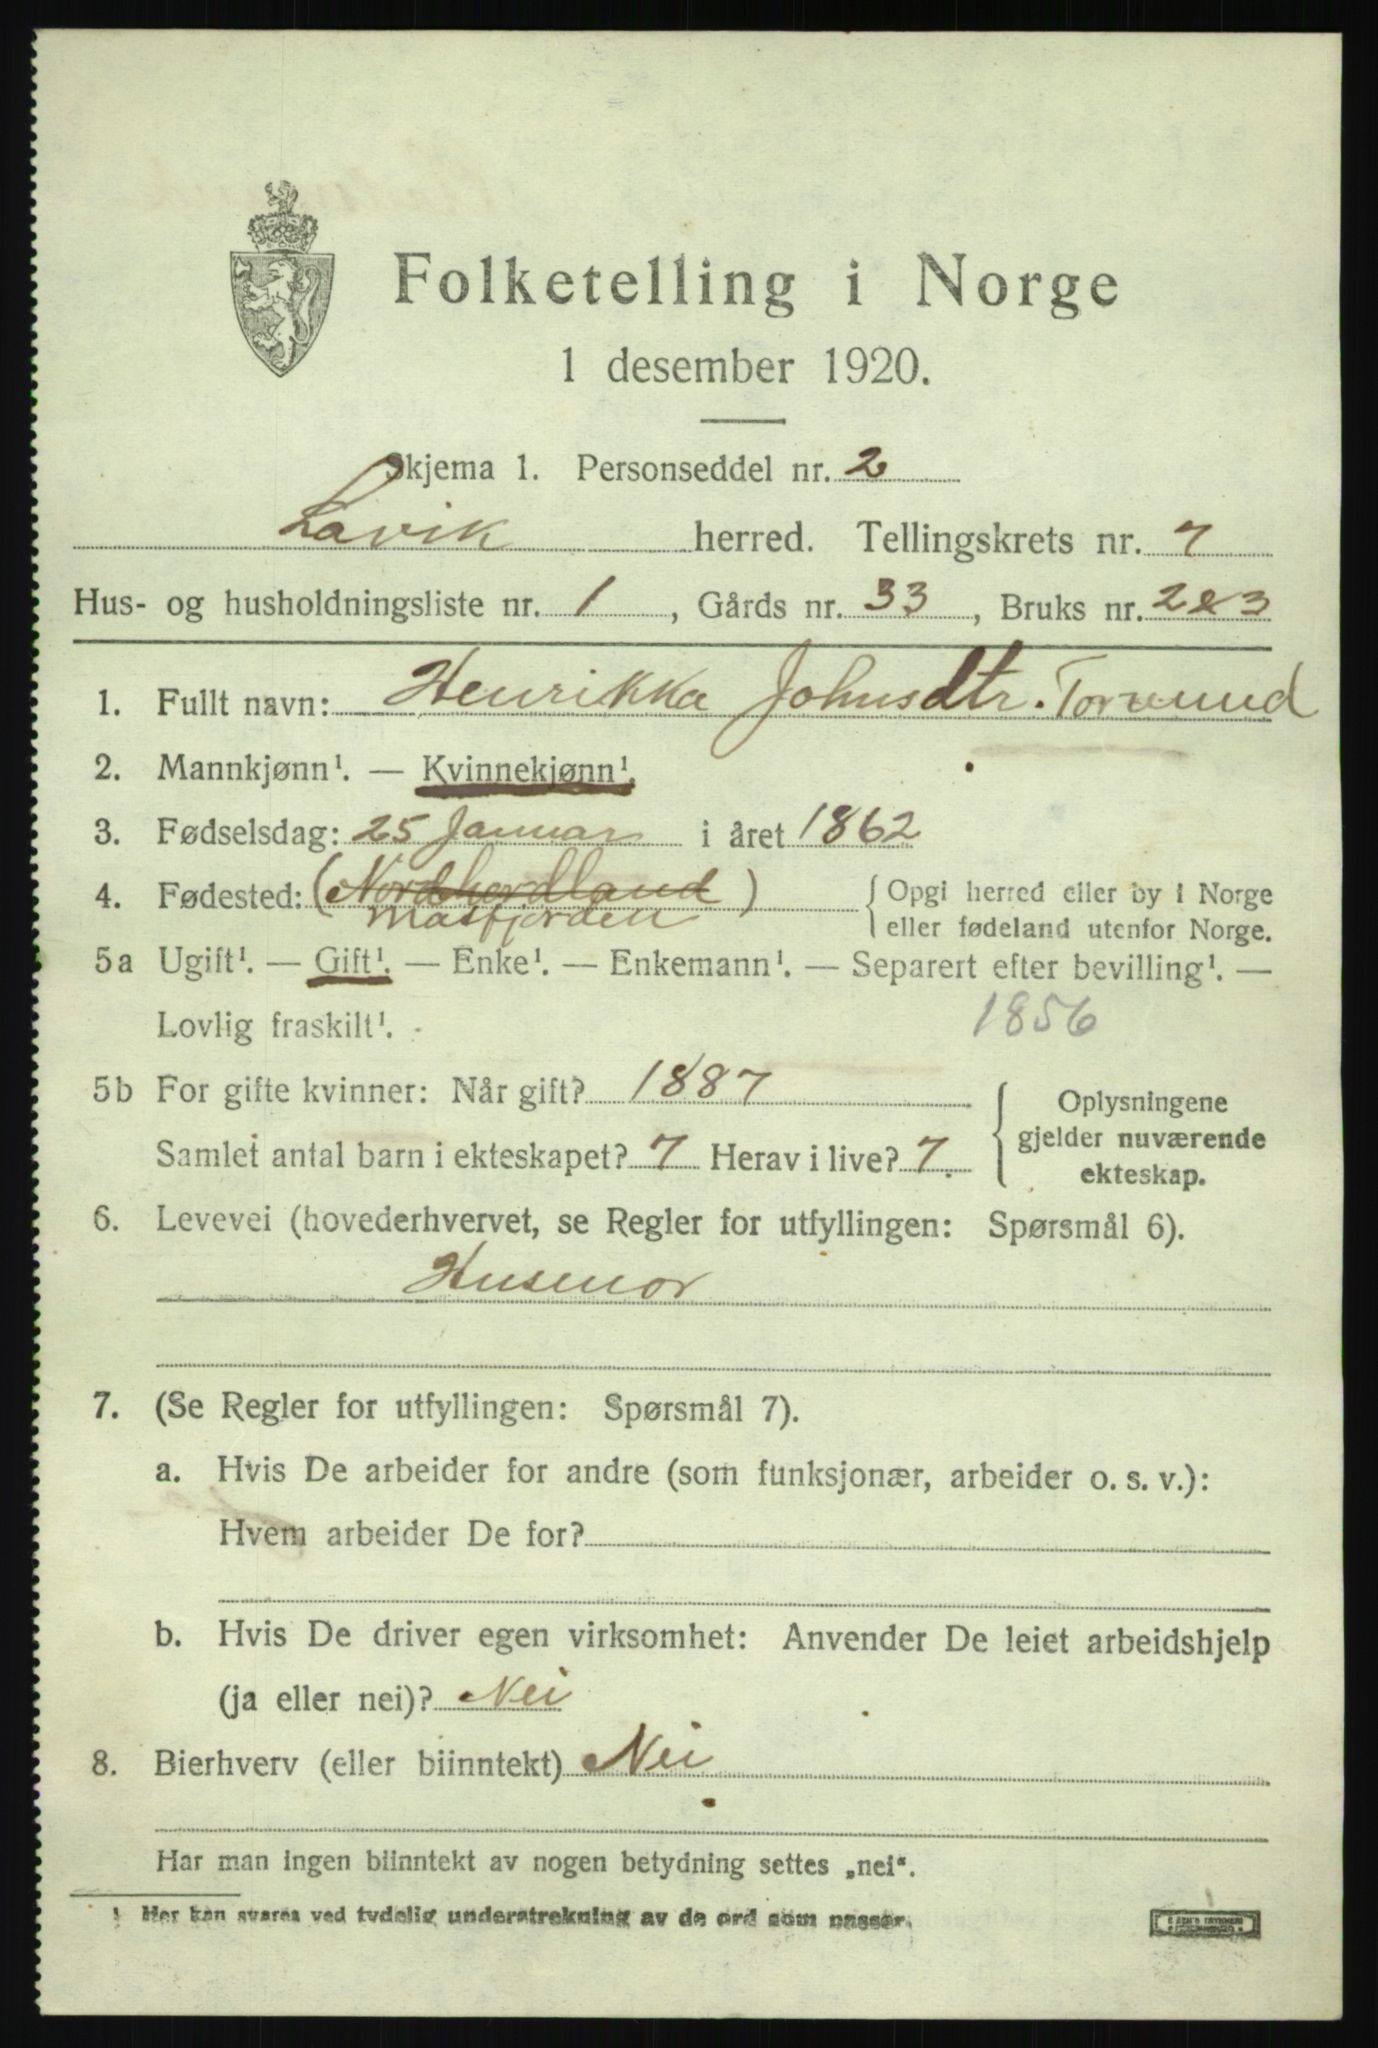 Folketelling i Norge
1 desember 1920.
Skjema 1. Personseddel nr. 2
Lavik herred. Tellingskrets nr. 7
Hus- og husholdningsliste nr. 1, Gårds nr. 33, Bruks nr. 2&3
1. Fullt navn: Henrikka Johnsdtr. Torvund
2. Mannkjønn¹. — Kvinnekjønn¹.
3. Fødselsdag: 25 Januar i året 1862
4. Fødested: (Nordhordland) { Opgi herred eller by i Norge
Masfjorden eller fødeland utenfor Norge.
5a Ugift¹. — Gift¹. — Enke¹. — Enkemann¹. — Separert efter bevilling¹. —
Lovlig fraskilt¹. 1856
5b For gifte kvinner: Når gift? 1887 { Oplysningene
gjelder nuværende
Samlet antal barn i ekteskapet? 7 Herav i live? 7.
ekteskap.
6. Levevei (hovederhvervet, se Regler for utfyllingen: Spørsmål 6).
Husmor
7. (Se Regler for utfyllingen: Spørsmål 7).
a. Hvis De arbeider for andre (som funksjonær, arbeider o. s. v.):
Hvem arbeider De for?
b. Hvis De driver egen virksomhet: Anvender De leiet arbeidshjelp
(ja eller nei)? Nei
8. Bierhverv (eller biinntekt) Nei
Har man ingen biinntekt av nogen betydning settes „nei“.
¹ Her kan svares ved tydelig understrekning av de ord som passer.